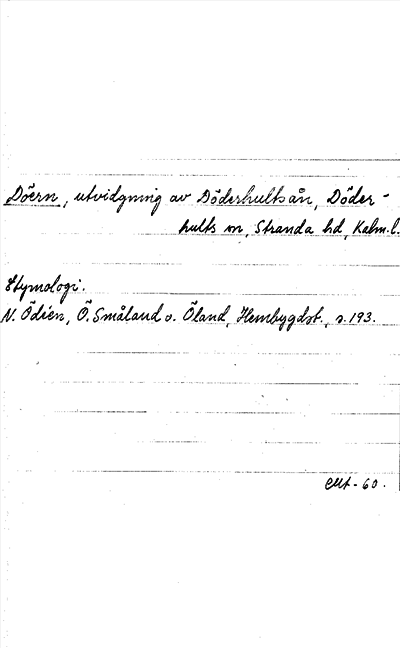 Döern, utvidgning av Döderhultsån, Döder-
hults sn, Stranda hd, Kalm. l.
Etymologi:
N. Ödéen, Ö. Småland o. Öland, Hembygdst., s. 193.
-60.